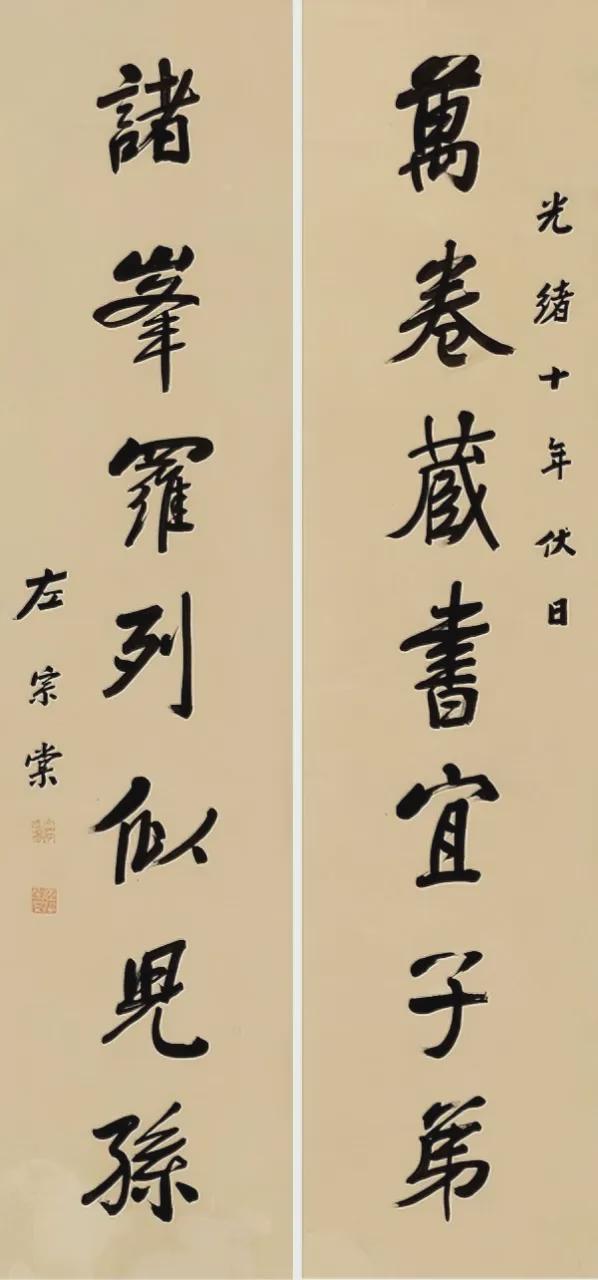 光緒十年伏日
萬卷蔵書宜子弟
諸峯羅列似兒孫
左宗棠